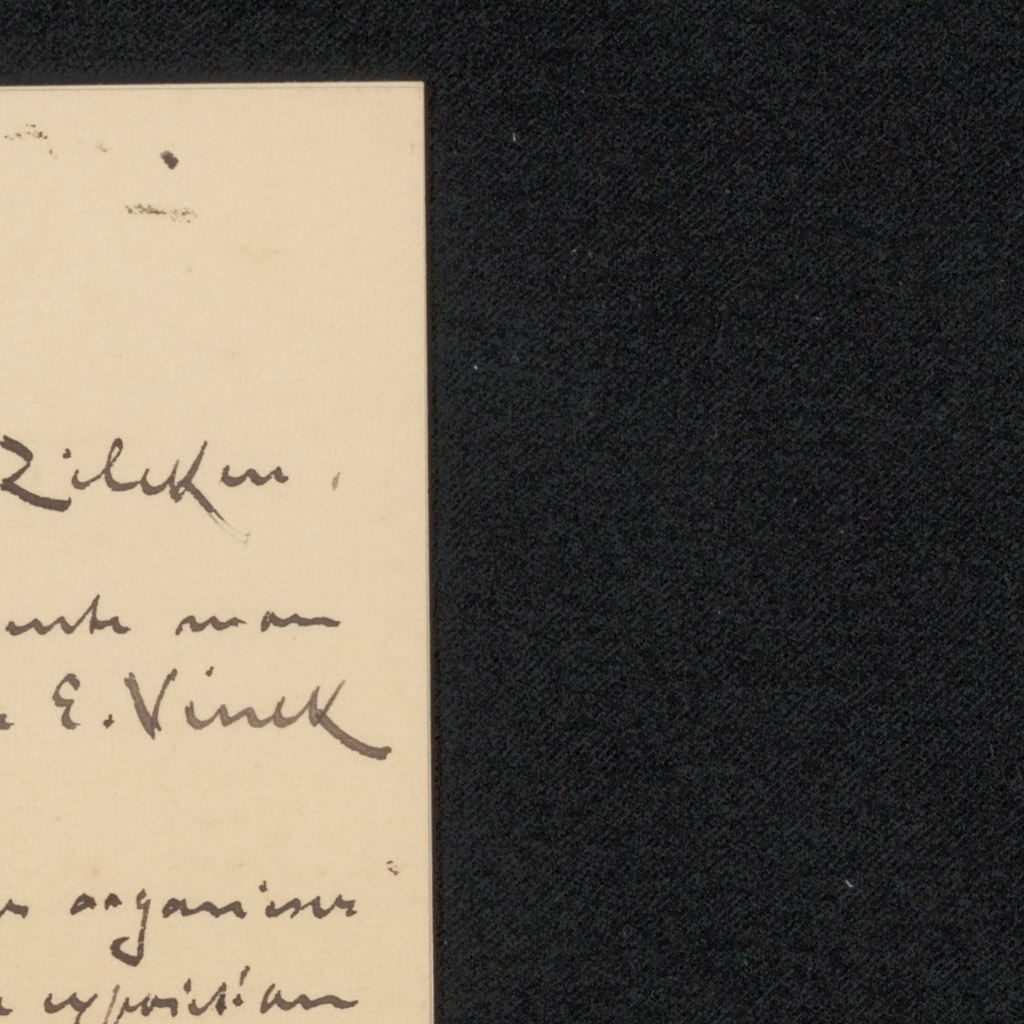 Zilcken.
ente mon
E. Vinck
organiser
exposition